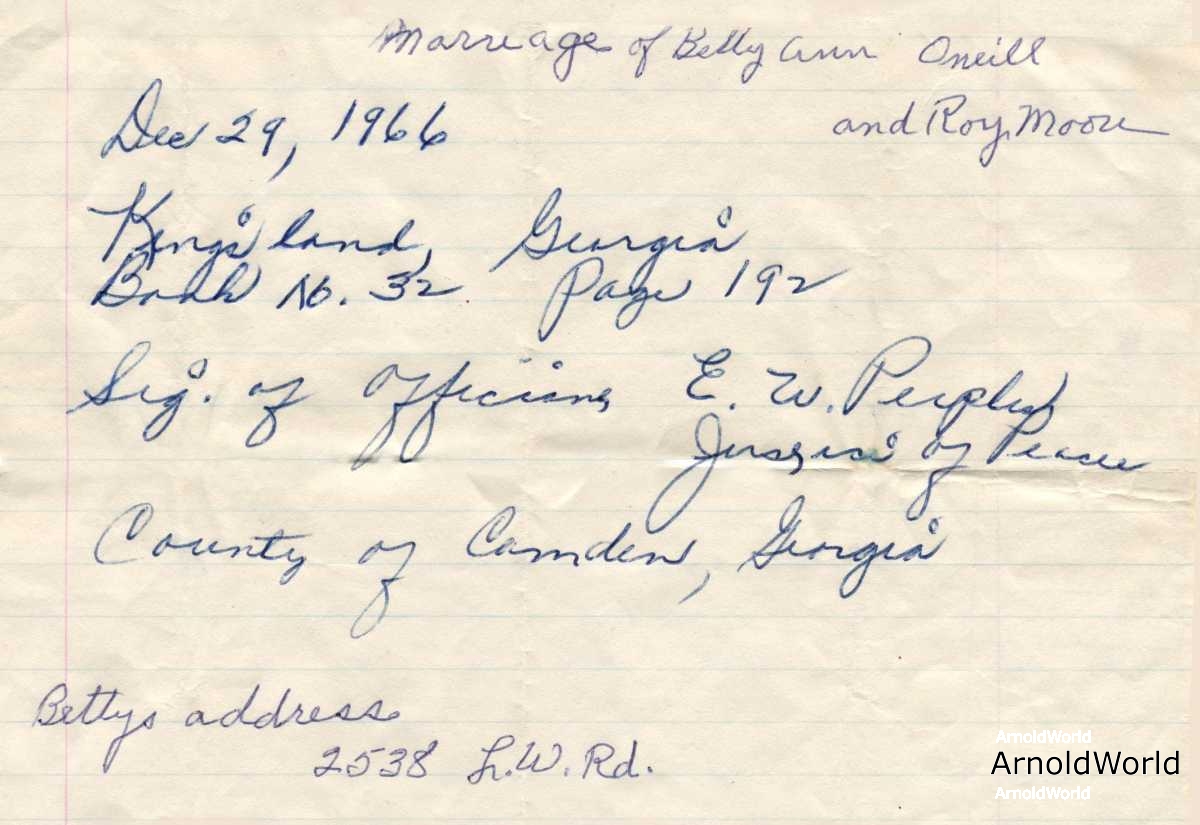 Marreage of Betty Ann Oneill
and Roy Moore
Dec 29, 1966
Kingsland, Georgia
Book No. 32 Page 192
Sig. of Officiant E. W. Peeples
of Peace
County of Camden, Georgia
Bettys address
2538 L.W. Rd.
ArnoldWorld
ArnoldWorld
ArnoldWorld